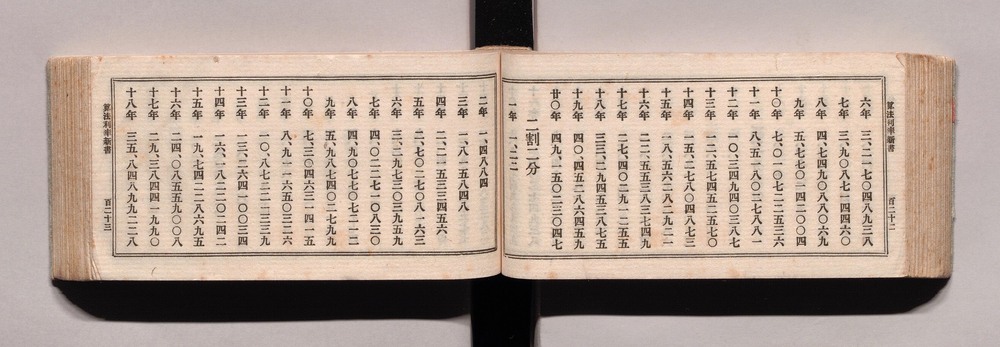 算法利率新書 百二十二
六年 三、二一七〇四八九三八
七年 三、九〇八七一四四六〇
八年 四、七四九〇八八〇六九
九年 五、七七〇一四二〇〇四
十〇年 七、〇一〇七二二五三六
十一年 八、五一八〇二七八八一
十二年 一〇、三四九四〇三八七
十三年 一二、五七四五二五七〇
十四年 一五、二七八〇四八七三
十五年 一八、五六二八二九二一
十六年 二二、五五三八三七四九
十七年 二七、四〇二九一二五五
十八年 三三、二九四五三八七五
十九年 四〇、四五二八六四五九
廿〇年 四九、一五〇二三〇四七
二割二分
一年 一、二二
二年 一、四八八四
三年 一、八一五八四八
四年 二、二一五三三四五六
五年 二、七〇二七〇八一六三
六年 三、二九七三〇三九五九
七年 四、〇二二七一〇八三〇
八年 四、九〇七七〇七二一二
九年 五、九八七四〇二七九九
十〇年 七、三〇四六三一四一五
十一年 八、九一一六五〇三二六
十二年 一〇、八七二二一三三九
十三年 一三、二六四一〇〇三四
十四年 一六、一八二二〇二四二
十五年 一九、七四二二八六九五
十六年 二四、〇八五五九〇〇八
十七年 二九、三八四四一九九〇
十八年 三五、八四八九九二二八
算法利率新書 百二十三